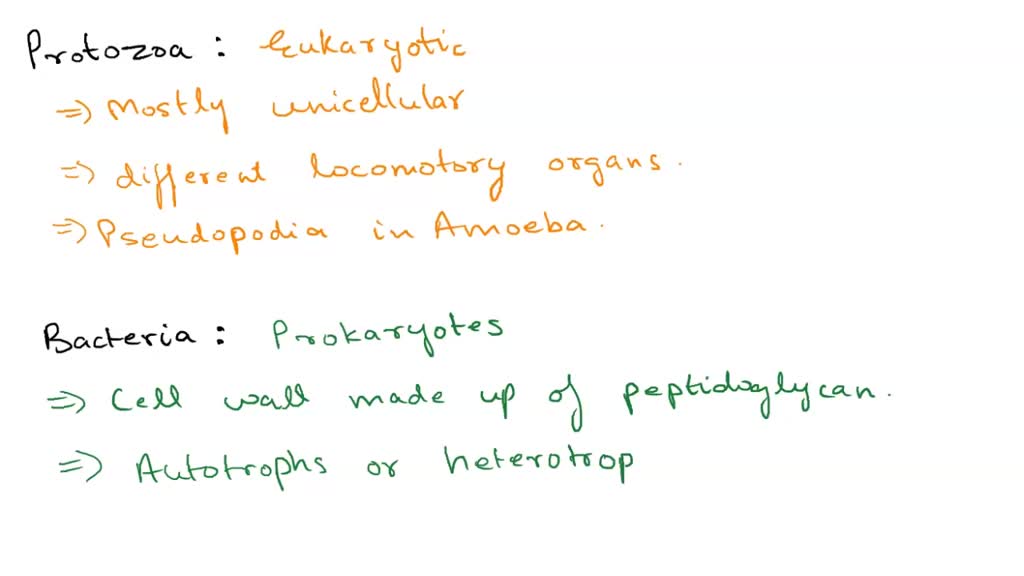 Protozoa : Eukaryotic
=> Mostly unicellular
=> different locomotory organs.
=> Pseudopodia in Amoeba.
Bacteria : Prokaryotes
=> Cell wall made up of peptidoglycan.
=> Autotrophs or heterotrop